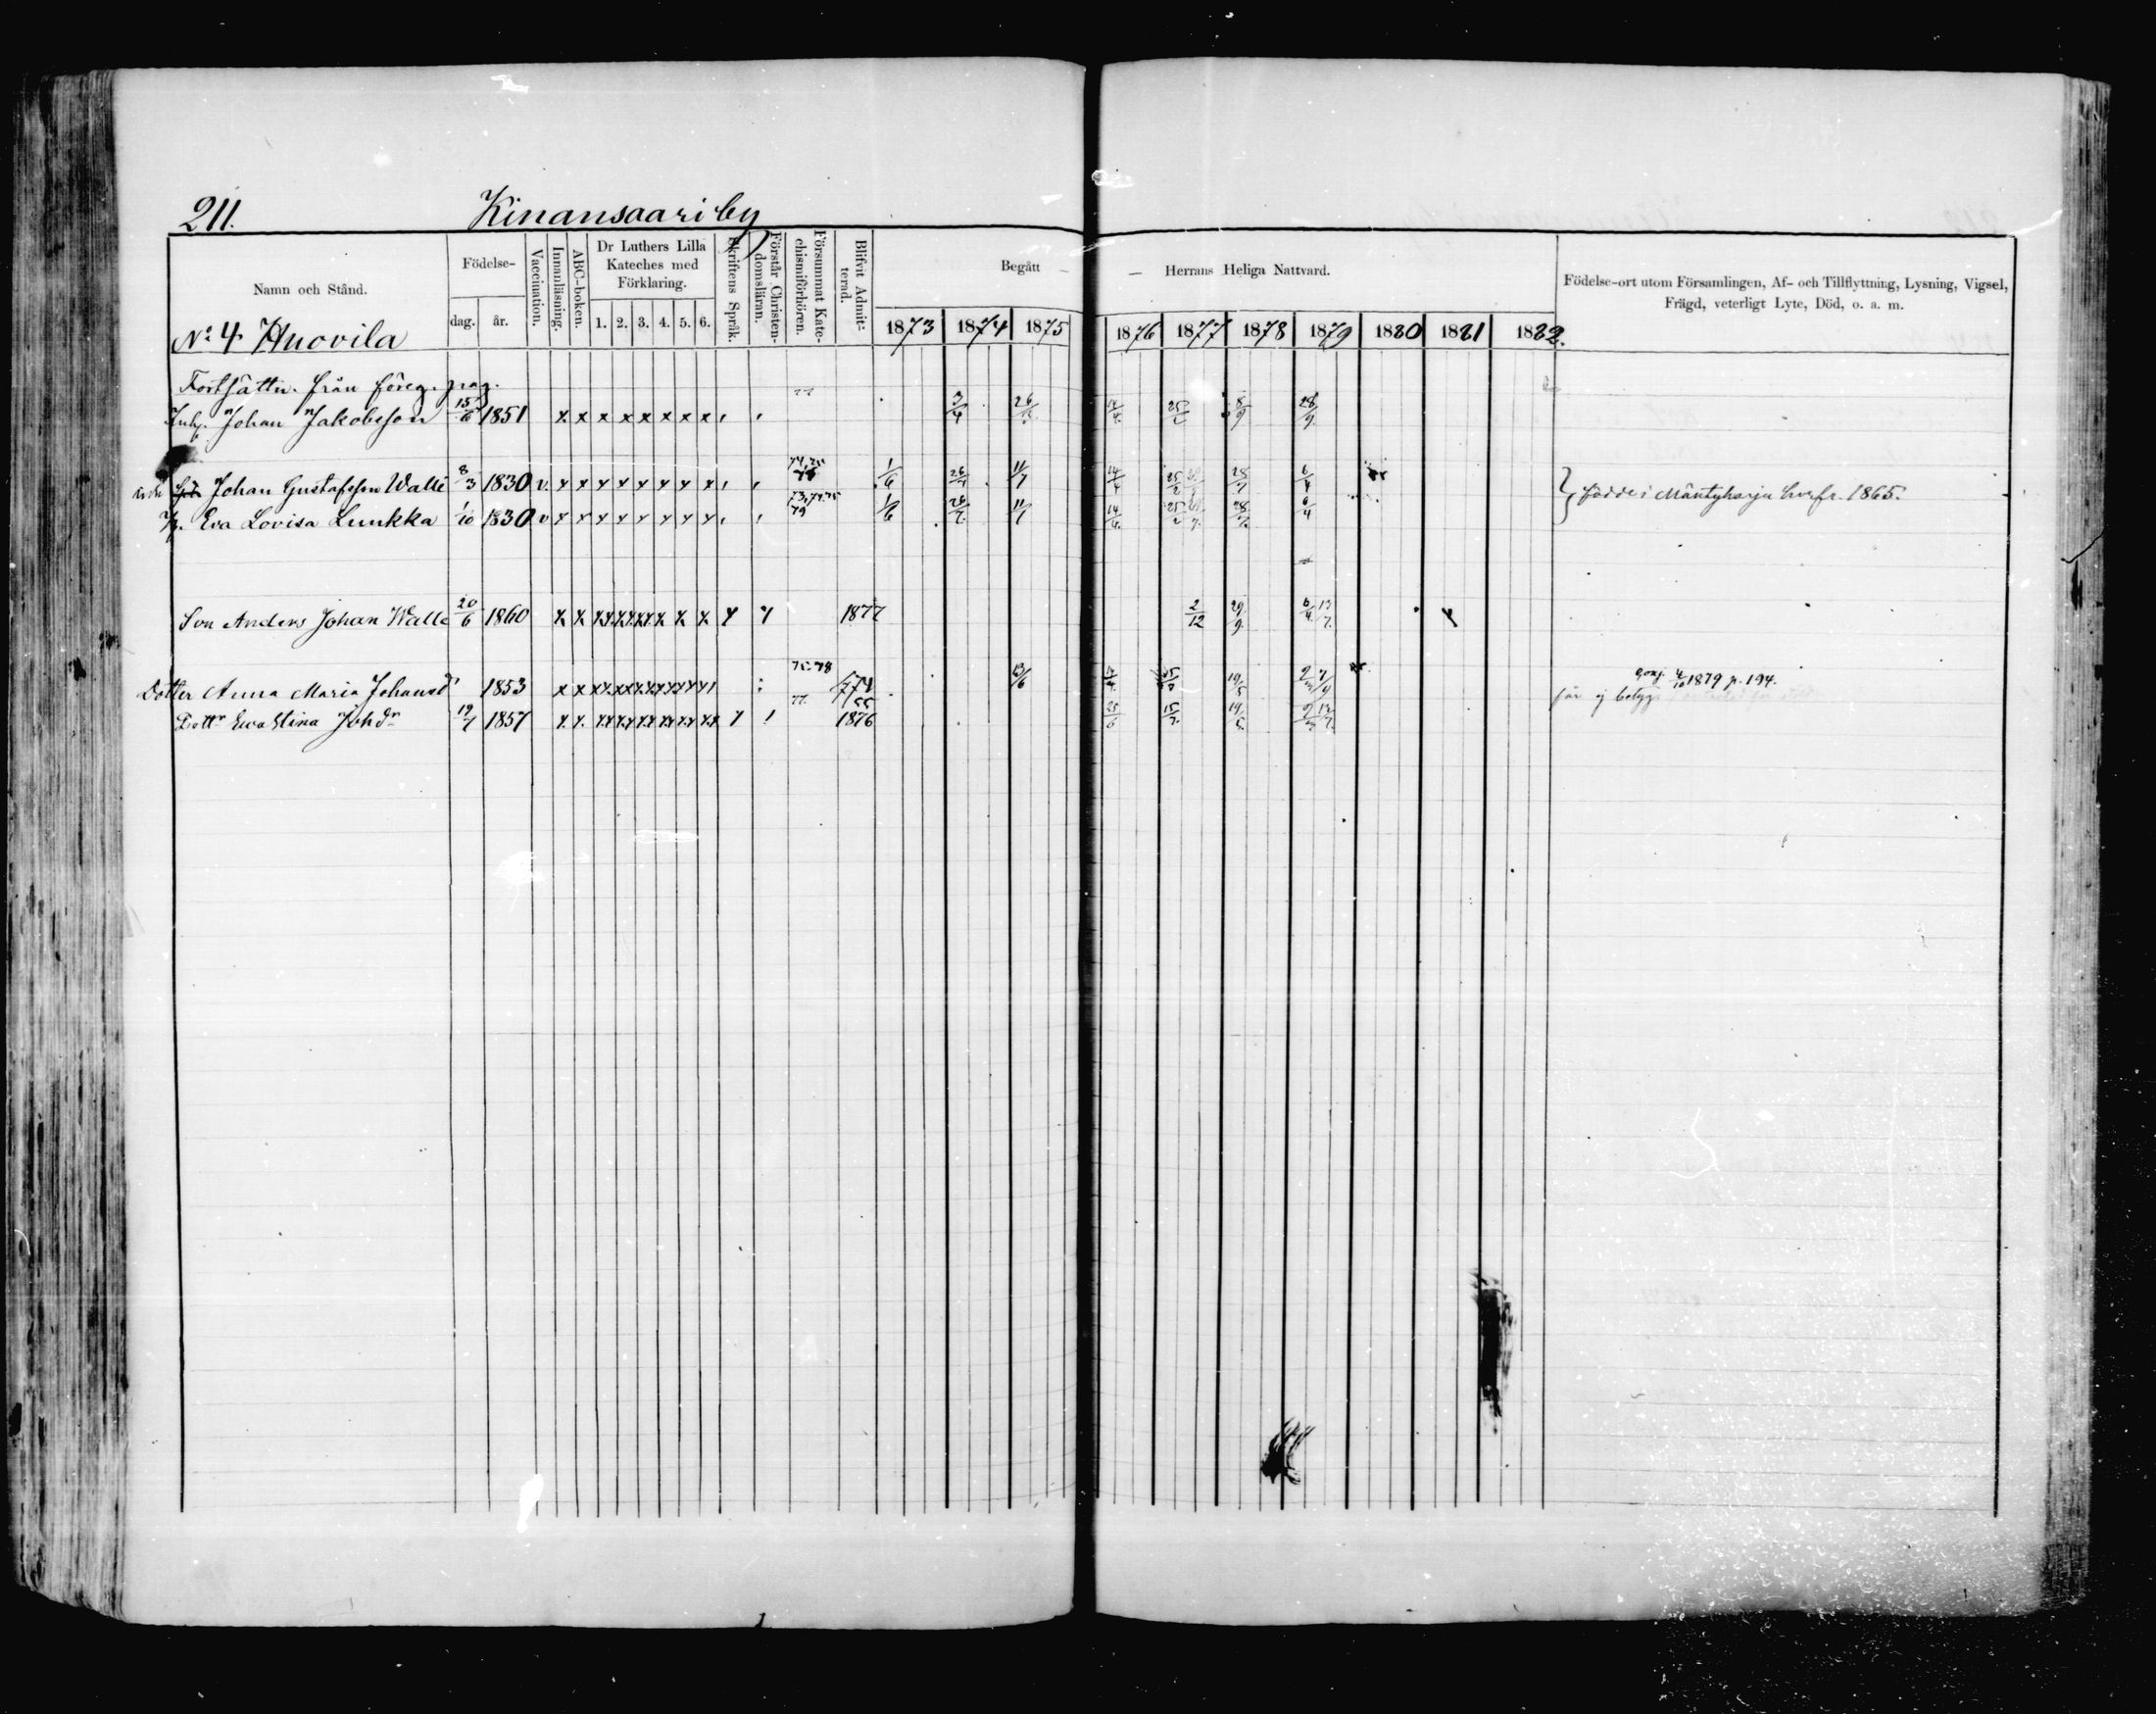 211.
Kinansaari by
Namn och Stånd.
Födelse-
dag. år.
Vaccination.
Innanläsning.
ABC-boken.
Dr Luthers Lilla
Kateches med
Förklaring.
1. 2. 3. 4. 5. 6.
Skriftens Språk.
Förstår Christen-
domsläran.
Försummat Kate-
chismiförhören.
Blifvit Admit-
terad.
Begått — — Herrans Heliga Nattvard.
1873 1874 1875 1876 1877 1878 1879 1880 1881 1882.
Födelse-ort utom Församlingen, Af- och Tillflyttning, Lysning, Vigsel,
Frägd, veterligt Lyte, Död, o. a. m.
No 4 Huovila
Fortsättn. från föreg. pag.
Inh. Johan Jakobsson 15/6 1851 x x x x x x x x 77 3/4 8/9 28/9
Johan Gustafsson Walle 8/3 1830 v. x x x x x x x x 74,75 1/6 26/7 11/7 14/4 28/7 6/4
födde i Mäntyharju hvarfr. 1865.
Eva Lovisa Luukka 1/10 1830 v x x x x x x x x 73,74,75 79 1/6 26/7 11/7 14/4 28/7 6/4
Son Anders Johan Walle 20/6 1860 1877 2/12 29/9 6/4 13/7
Dotter Anna Maria Johansd 1853 75 78 13/6 19/5
4/10 1879 p. 194.
får ej betyg
Dottr Eva Stina Johdr 19/7 1857 77 1876 25/6 15/7 19/5